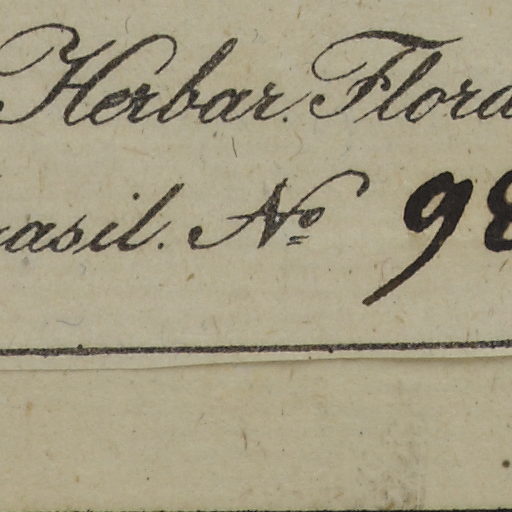 Herbar. Flora
asil. No 9